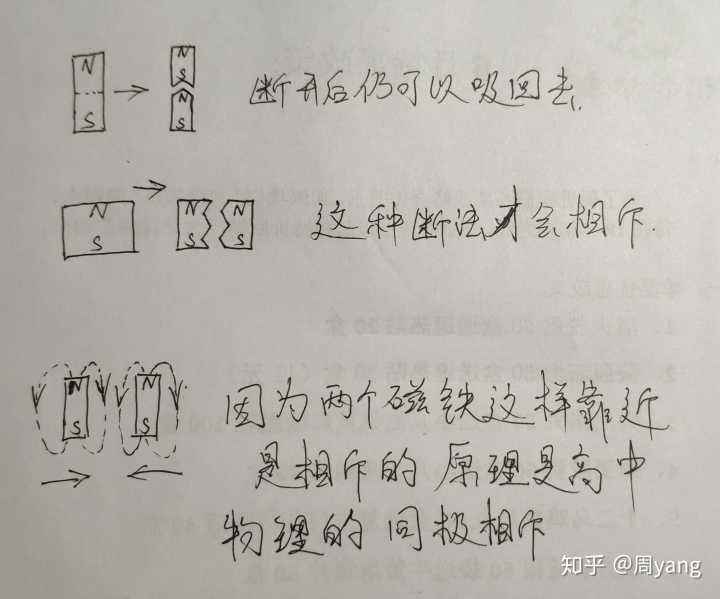 N
S
N
S
N
S
断开后仍可以吸回去.
N
S
N
S
N
S
这种断法才会相斥.
N
S
N
S
因为两个磁铁这样靠近
是相斥的原理是高中
物理的同极相斥
知乎 @周yang